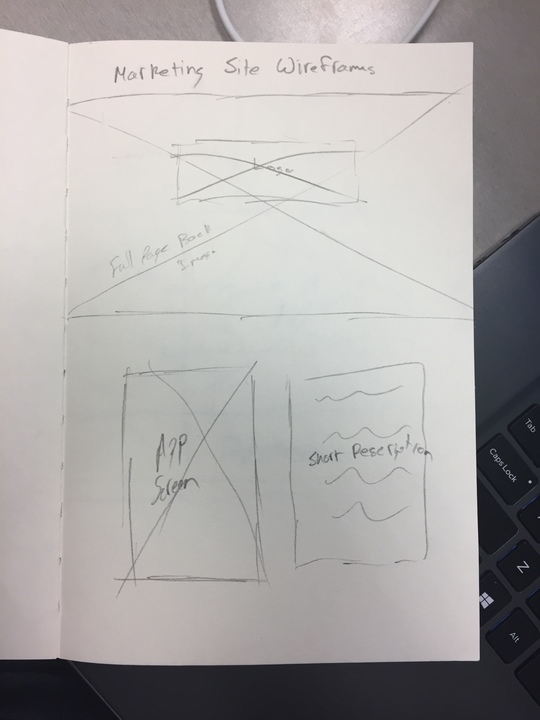 Marketing Site Wireframes
Logo
Full Page Back
Image
App
Screen
Short Description
Tab
Caps Lock
Z
Alt